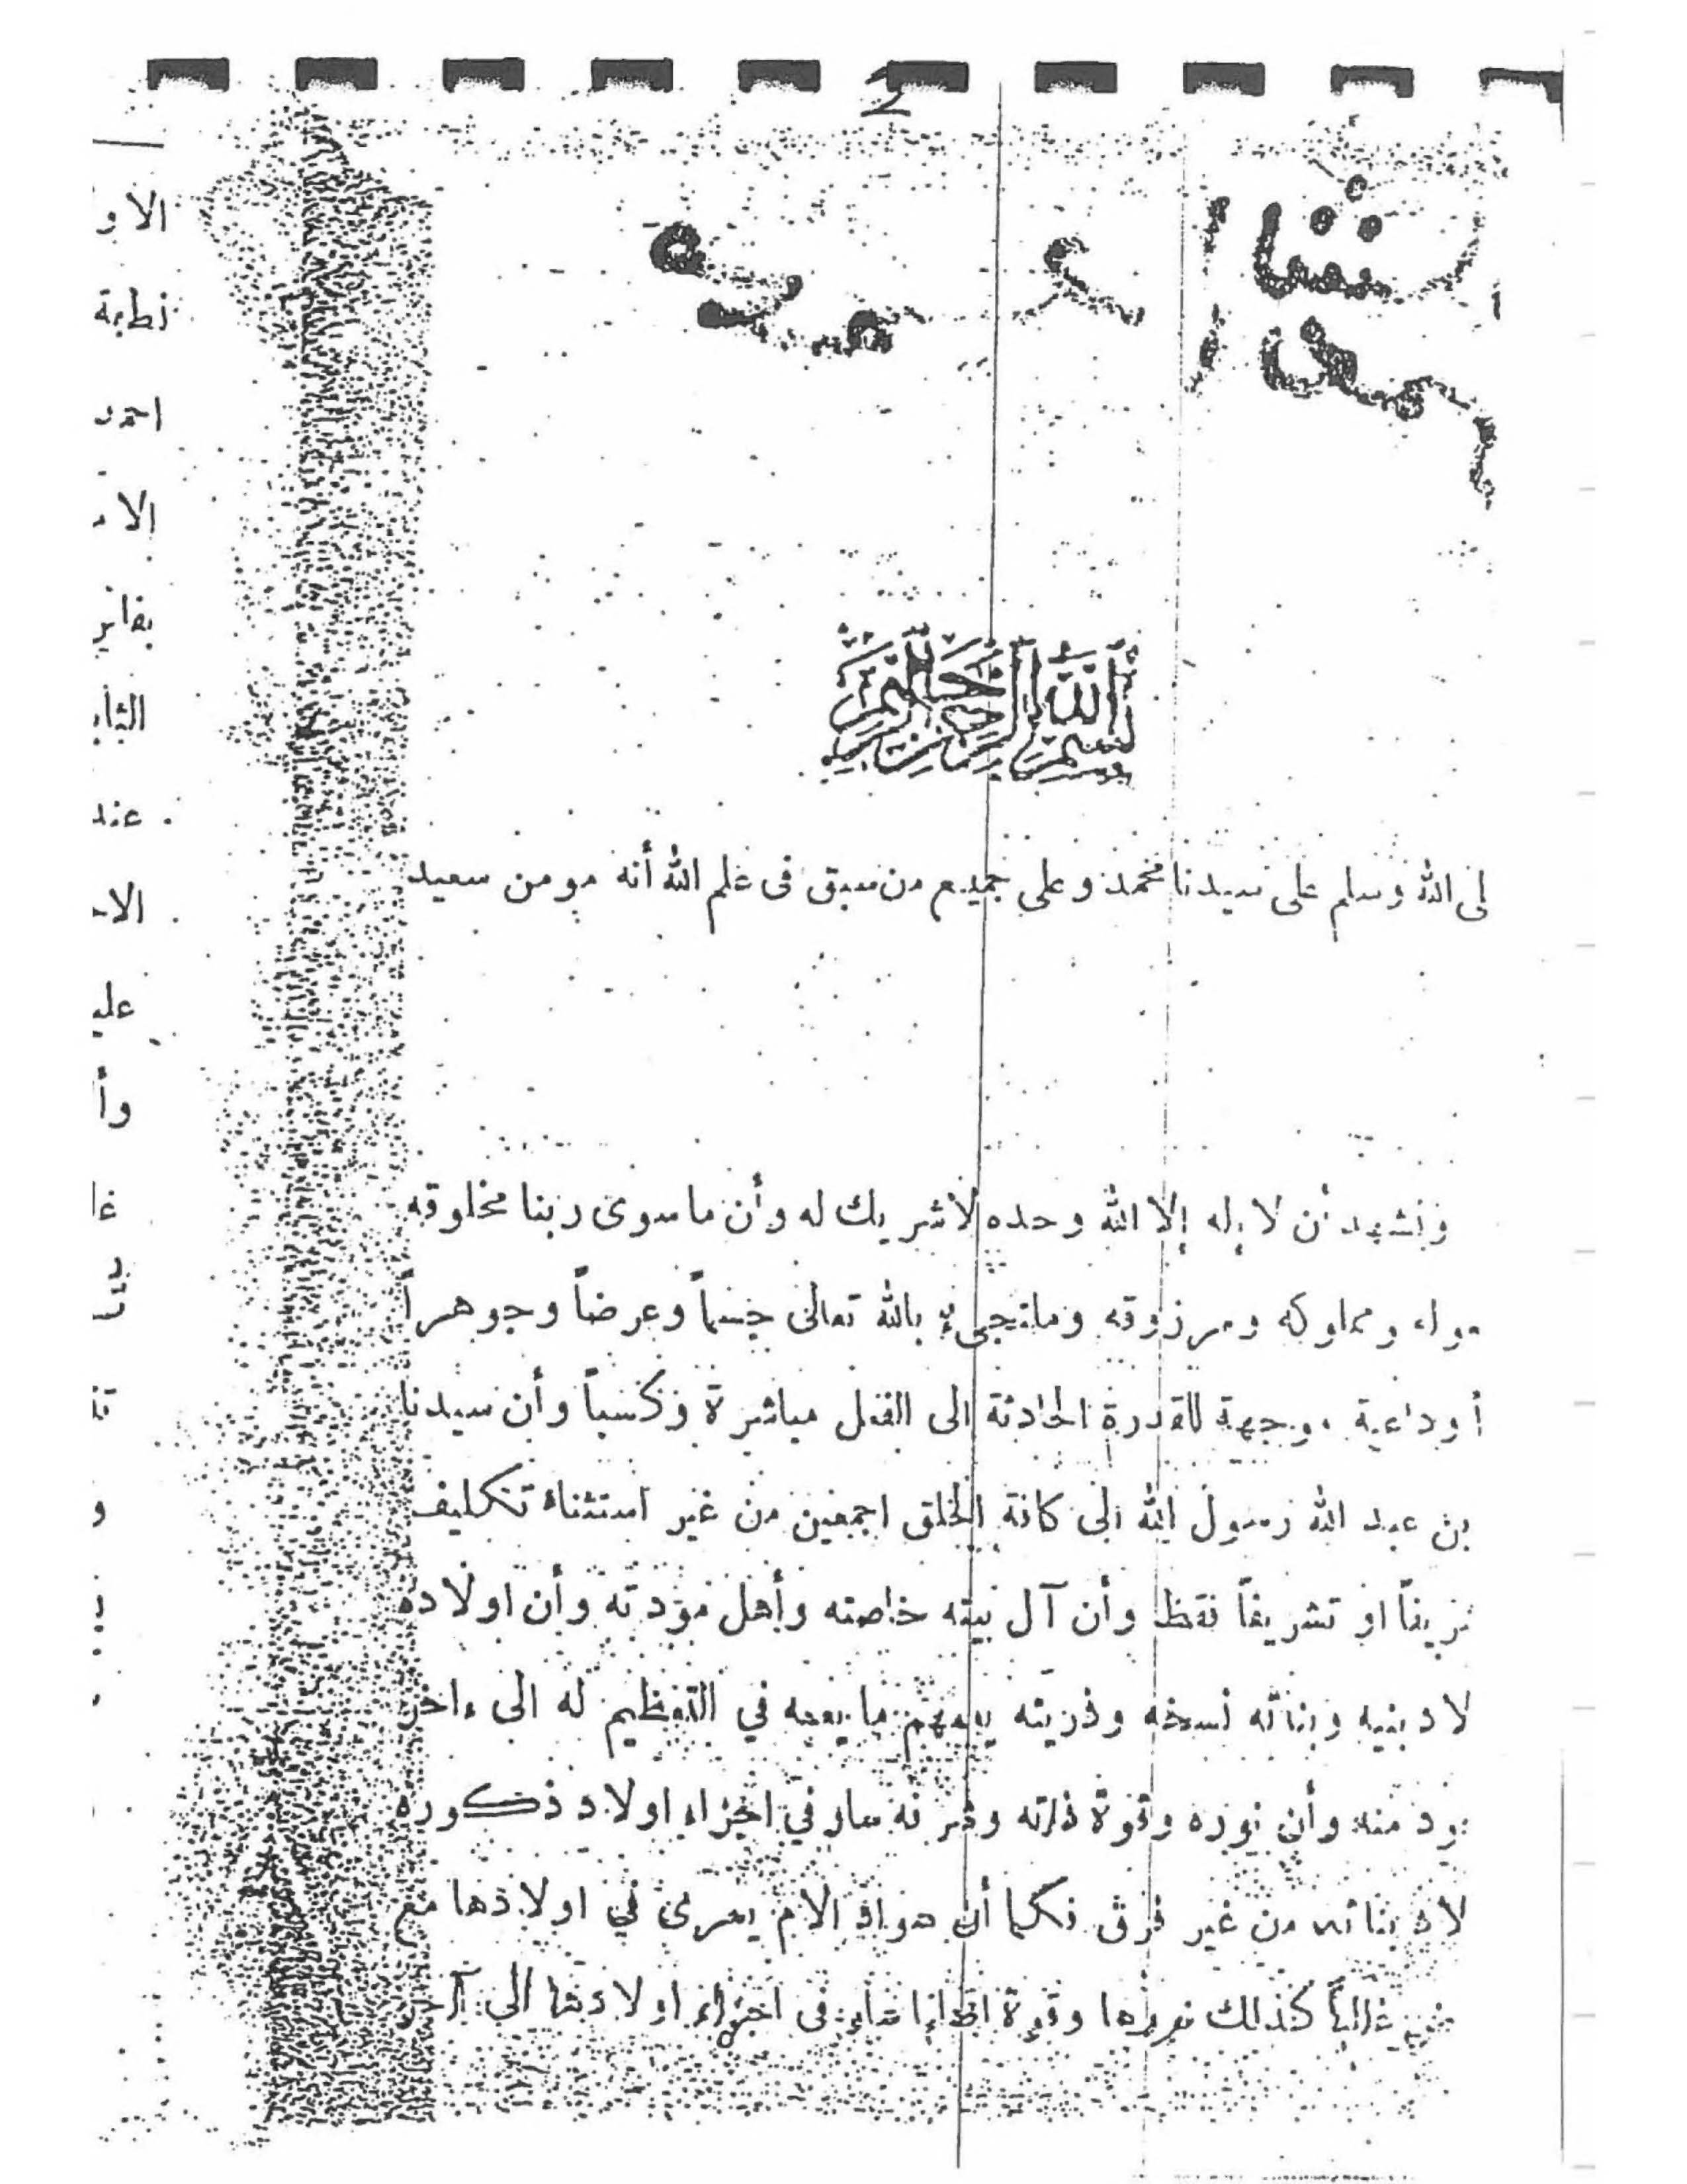 2
بسم الله الرحمن الرحيم
لى الله وسلم على سيدنا محمد وعلى جميع من سبق فى علم الله أنه مومن سعيد
ونشهد أن لا إله إلا الله وحده لا شريك له وأن ما سوى ربنا مخلوقه
ومملوكه ومرزوقه بالله تعالى جسماً وعرضاً وجوهراً
أوداعية موجهة للقدرة الحادثة إلى الفعل مباشرة وكسباً وأن سيدنا
بن عبد الله رسول الله الى كافة الخلق اجمعين من غير استثناء تكليف
او تشريفاً فقط وأن آل بيته خاصته وأهل مودته وأن اولاده
لاد بنيه وبناته نسخه وذريته يعمهم ما يعمه في التعظيم له الى ءاخر
ود منه وأن نوره وقوة ذاته سار في اجزاء اولاد ذكوره
لاد بناته من غير فرق فكما أن الام يسرى في اولادها مع
غالباً كذلك وقوة فى اجزاء اولادها الى آخر
الاو
احمد
الا
عند
علي
وأ